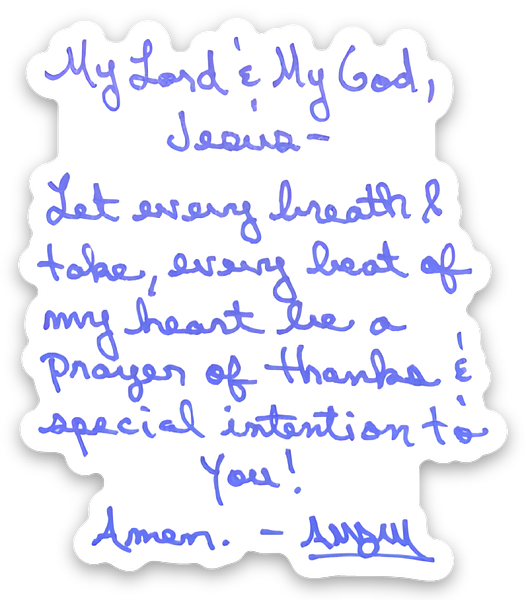 My Lord & My God,
Jesus-
Let every breath I
take, every beat of
my heart be a
prayer of thanks &
special intention to
You!
Amen. -